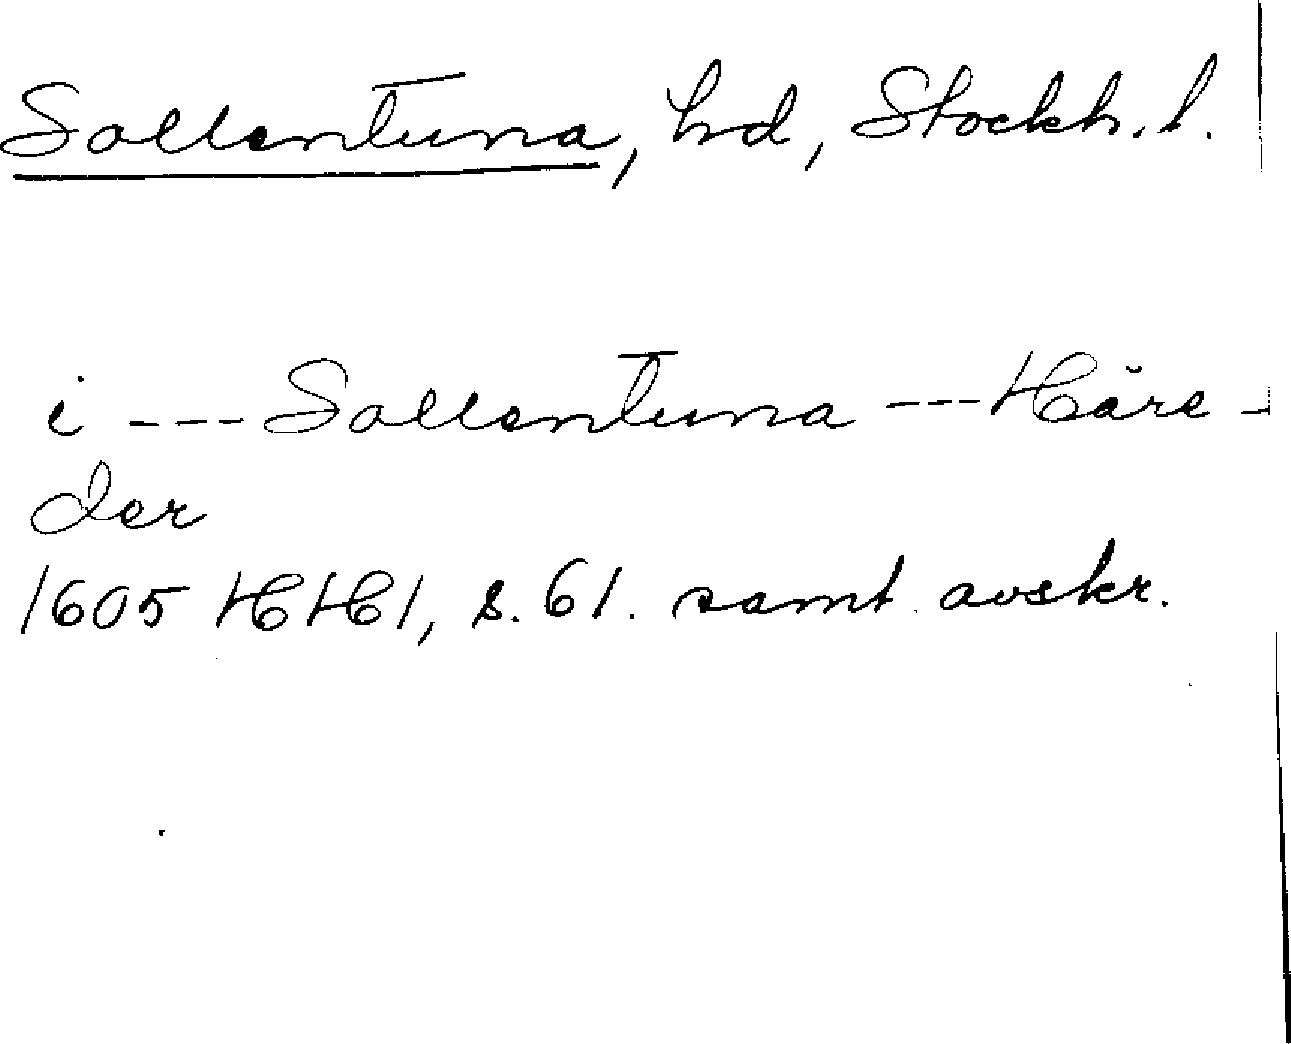 Sollentuna, hd, Stockh. l.
i --- Sollentuna --- Häre-
der
1605 HH1, s. 61. samt avskr.